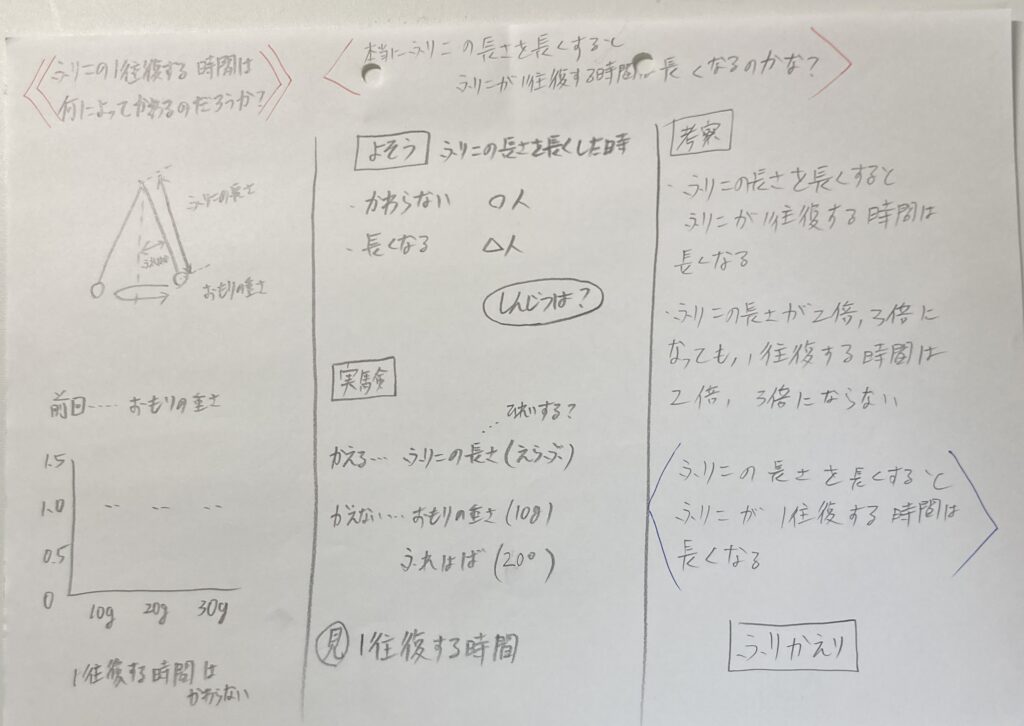 ふりこの1往復する時間は
何によってかわるのだろうか?
ふりこの長さ
ふれはば
おもりの重さ
前回…… おもりの重さ
1.5
1.0
0.5
0
10g 20g 30g
1往復する時間は
かわらない
本当にふりこの長さを長くすると
ふりこが1往復する時間が長くなるのかな?
よそう ふりこの長さを長くした時
・かわらない ○人
・長くなる △人
しんじつは?
実験
ひれいする?
かえる… ふりこの長さ(えらぶ)
かえない… おもりの重さ(10g)
ふれはば(20°)
見 1往復する時間
考察
・ふりこの長さを長くすると
ふりこが1往復する時間は
長くなる
・ふりこの長さが2倍,3倍に
なっても,1往復する時間は
2倍,3倍にならない
ふりこの長さを長くすると
ふりこが1往復する時間は
長くなる
ふりかえり